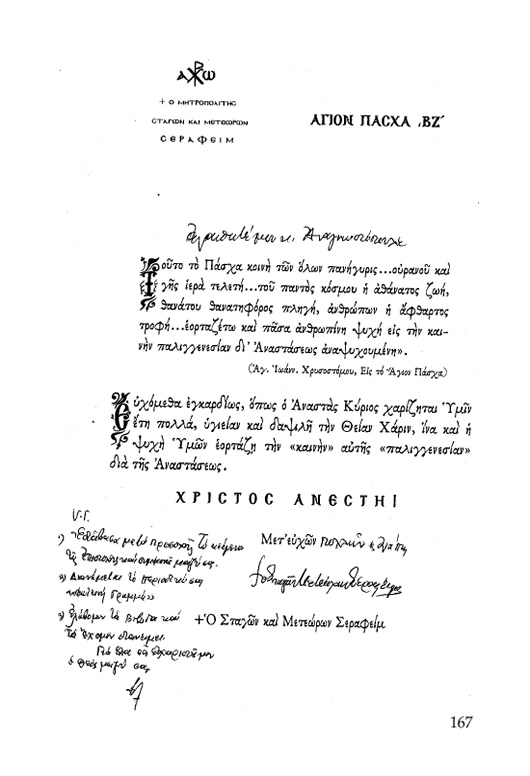 ΑΧΩ
+ Ο ΜΗΤΡΟΠΟΛΙΤΗΣ
СΤΑΓΩΝ ΚΑΙ ΜΕΤΕΩΡΩΝ
СΕΡΑΦΕΙΜ
ΑΓΙΟΝ ΠΑСΧΑ ͵ΒΖ΄
Ἀγαπητέ μου κ. Ἀναγνωστόπουλε
Τοῦτο τὸ Πάσχα κοινὴ τῶν ὅλων πανήγυρις...οὐρανοῦ καὶ
γῆς ἱερὰ τελετή...τοῦ παντὸς κόσμου ἡ ἀθάνατος ζωή,
θανάτου θανατηφόρος πληγή, ἀνθρώπων ἡ ἄφθαρτος
τροφή...ἑορταζέτω καὶ πᾶσα ἀνθρωπίνη ψυχὴ εἰς τὴν και-
νὴν παλιγγενεσίαν δι' Ἀναστάσεως ἀναψυχουμένη».
(Ἁγ. Ἰωάνν. Χρυσοστόμου, Εἰς τὸ Ἅγιον Πάσχα)
Εὐχόμεθα ἐγκαρδίως, ὅπως ὁ Ἀναστὰς Κύριος χαρίζηται Ὑμῖν
ἔτη πολλά, ὑγιείαν καὶ δαψιλῆ τὴν Θείαν Χάριν, ἵνα καὶ ἡ
ψυχὴ Ὑμῶν ἑορτάζῃ τὴν «καινὴν» αὐτῆς «παλιγγενεσίαν»
διὰ τῆς Ἀναστάσεως.
ΧΡΙСΤΟС ΑΝΕСΤΗ!
Υ.Γ.
1) μετὰ προσοχῆς τὸ κείμενο
τῆς
Μετ' εὐχῶν πολλῶν κ ἀγάπης
2) Διανέμεται τὸ περιοδικό σας
Γραμμή»
3) Ἐλάβομεν τὰ βιβλία καὶ
τὰ ἔχομεν διανείμει.
+Ὁ Σταγῶν καὶ Μετεώρων Σεραφείμ
Γιὰ ὅλα σᾶς εὐχαριστοῦμεν
ὁ Θεὸς μαζί σας
167